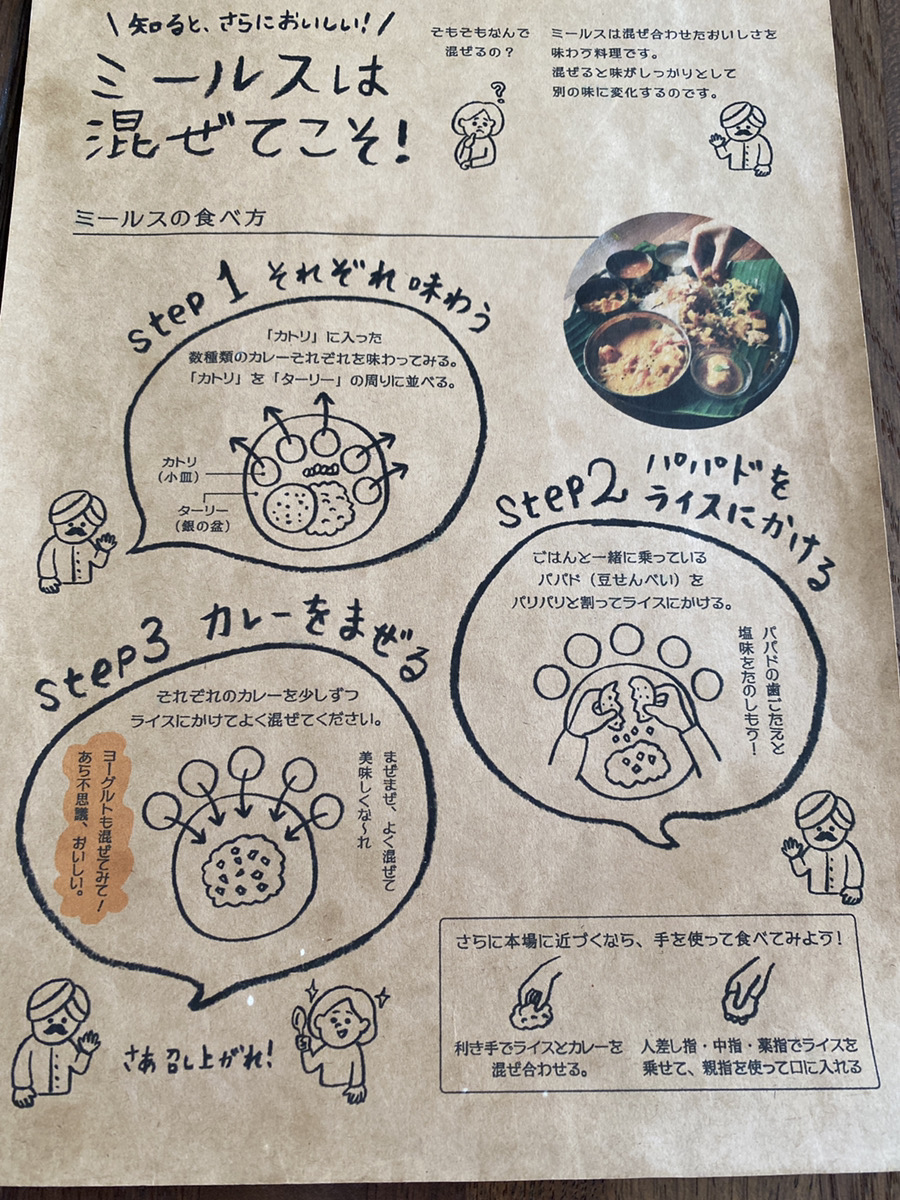 知ると、さらにおいしい！
ミールスは
混ぜてこそ！
そもそもなんで
混ぜるの？
?
ミールスは混ぜ合わせたおいしさを
味わう料理です。
混ぜると味がしっかりとして
別の味に変化するのです。
ミールスの食べ方
step 1 それぞれ味わう
「カトリ」に入った
数種類のカレーそれぞれを味わってみる。
「カトリ」を「ターリー」の周りに並べる。
カトリ
（小皿）
ターリー
（銀の盆）
step2 パパドを
ライスにかける
ごはんと一緒に乗っている
パパド（豆せんべい）を
パリパリと割ってライスにかける。
パパドの歯ごたえと
塩味をたのしもう！
step3 カレーをまぜる
それぞれのカレーを少しずつ
ライスにかけてよく混ぜてください。
まぜまぜ、よく混ぜて
美味しくな〜れ
ヨーグルトも混ぜてみて！
あら不思議、おいしい。
さあ召し上がれ！
さらに本場に近づくなら、手を使って食べてみよう！
利き手でライスとカレーを
混ぜ合わせる。
人差し指・中指・薬指でライスを
乗せて、親指を使って口に入れる